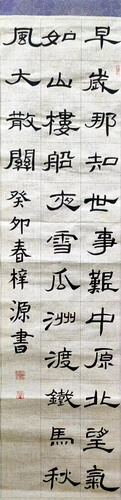 早歲那知世事艱中原北望氣
如山樓船夜雪瓜洲渡鐵馬秋
風大散關癸卯春梓源書